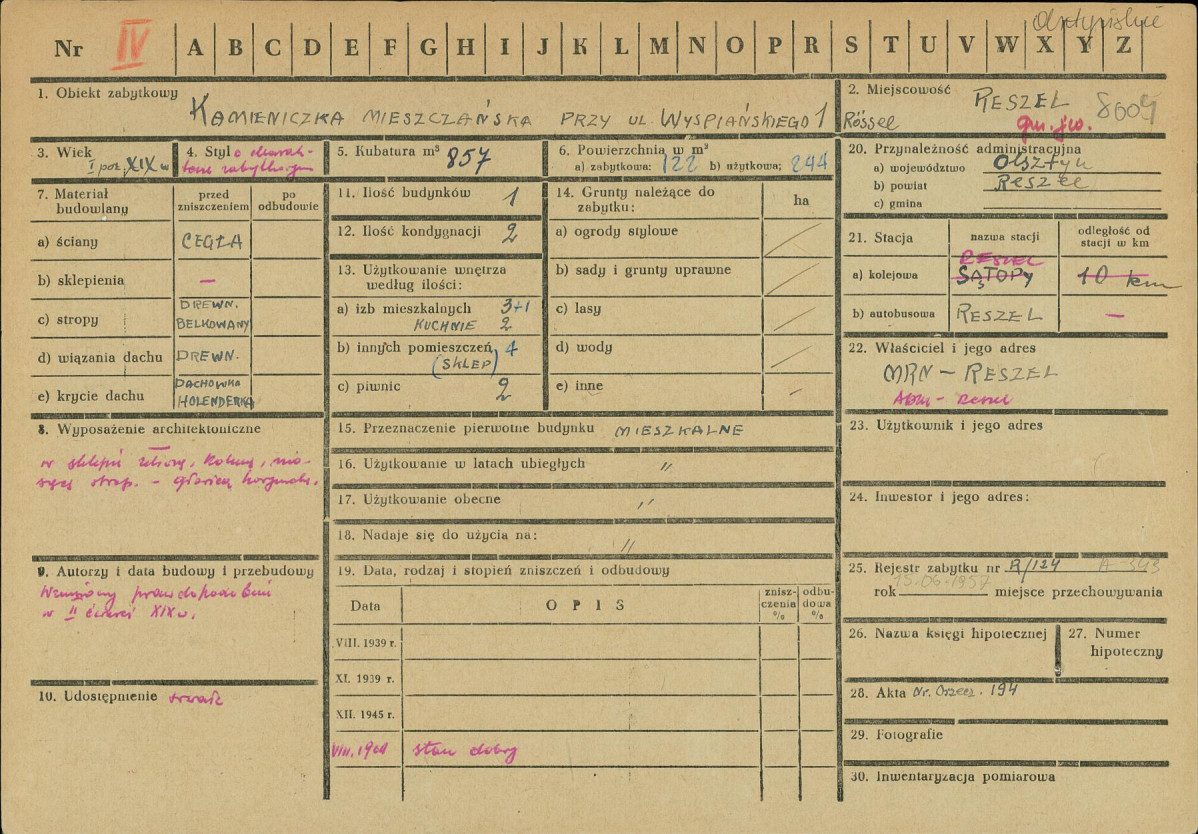 Nr IV A B C D E F G H I J K L M N O P R S T U V W X Y Z
1. Obiekt zabytkowy
KAMIENICZKA MIESZCZAŃSKA PRZY UL. WYSPIAŃSKIEGO 1
2. Miejscowość
RESZEL
Rössel
3. Wiek
I poł. XIX w
4. Styl o charak-
terze zabytkowym
5. Kubatura m³ 857
6. Powierzchnia w m³
a) zabytkowa: 122 b) użytkowa: 244
20. Przynależność administracyjna
a) województwo Olsztyn
b) powiat Reszel
c) gmina
7. Materiał
budowlany
przed
zniszczeniem
po
odbudowie
a) ściany CEGŁA
b) sklepienia —
c) stropy DREWN.
BELKOWANY
d) wiązania dachu DREWN.
e) krycie dachu DACHÓWKA
HOLENDERKA
11. Ilość budynków 1
12. Ilość kondygnacji 2
13. Użytkowanie wnętrza
według ilości:
a) izb mieszkalnych 3+1
KUCHNIE 2
b) innych pomieszczeń 4
(SKLEP)
c) piwnic 2
14. Grunty należące do
zabytku:
ha
a) ogrody stylowe
b) sady i grunty uprawne
c) lasy
d) wody
e) inne —
21. Stacja
nazwa stacji
odległość od
stacji w km
RESZEL
a) kolejowa SĄTOPY 10 km
b) autobusowa RESZEL —
22. Właściciel i jego adres
MRN – RESZEL
ADM – Reszel
8. Wyposażenie architektoniczne
9. Autorzy i data budowy i przebudowy
Wzniesiony prawdopodobnie
w II ćwierci XIX w.
10. Udostępnienie
15. Przeznaczenie pierwotne budynku MIESZKALNE
16. Użytkowanie w latach ubiegłych "
17. Użytkowanie obecne "
18. Nadaje się do użycia na: "
19. Data, rodzaj i stopień zniszczeń i odbudowy
Data
OPIS
znisz-
czenia
%
odbu-
dowa
%
VIII. 1939 r.
XI. 1939 r.
XII. 1945 r.
stan dobry
23. Użytkownik i jego adres
24. Inwestor i jego adres:
25. Rejestr zabytku nr R/124 A-343
15.06.1957
rok miejsce przechowywania
26. Nazwa księgi hipotecznej
27. Numer
hipoteczny
28. Akta Nr. Orzecz. 194
29. Fotografie
30. Inwentaryzacja pomiarowa